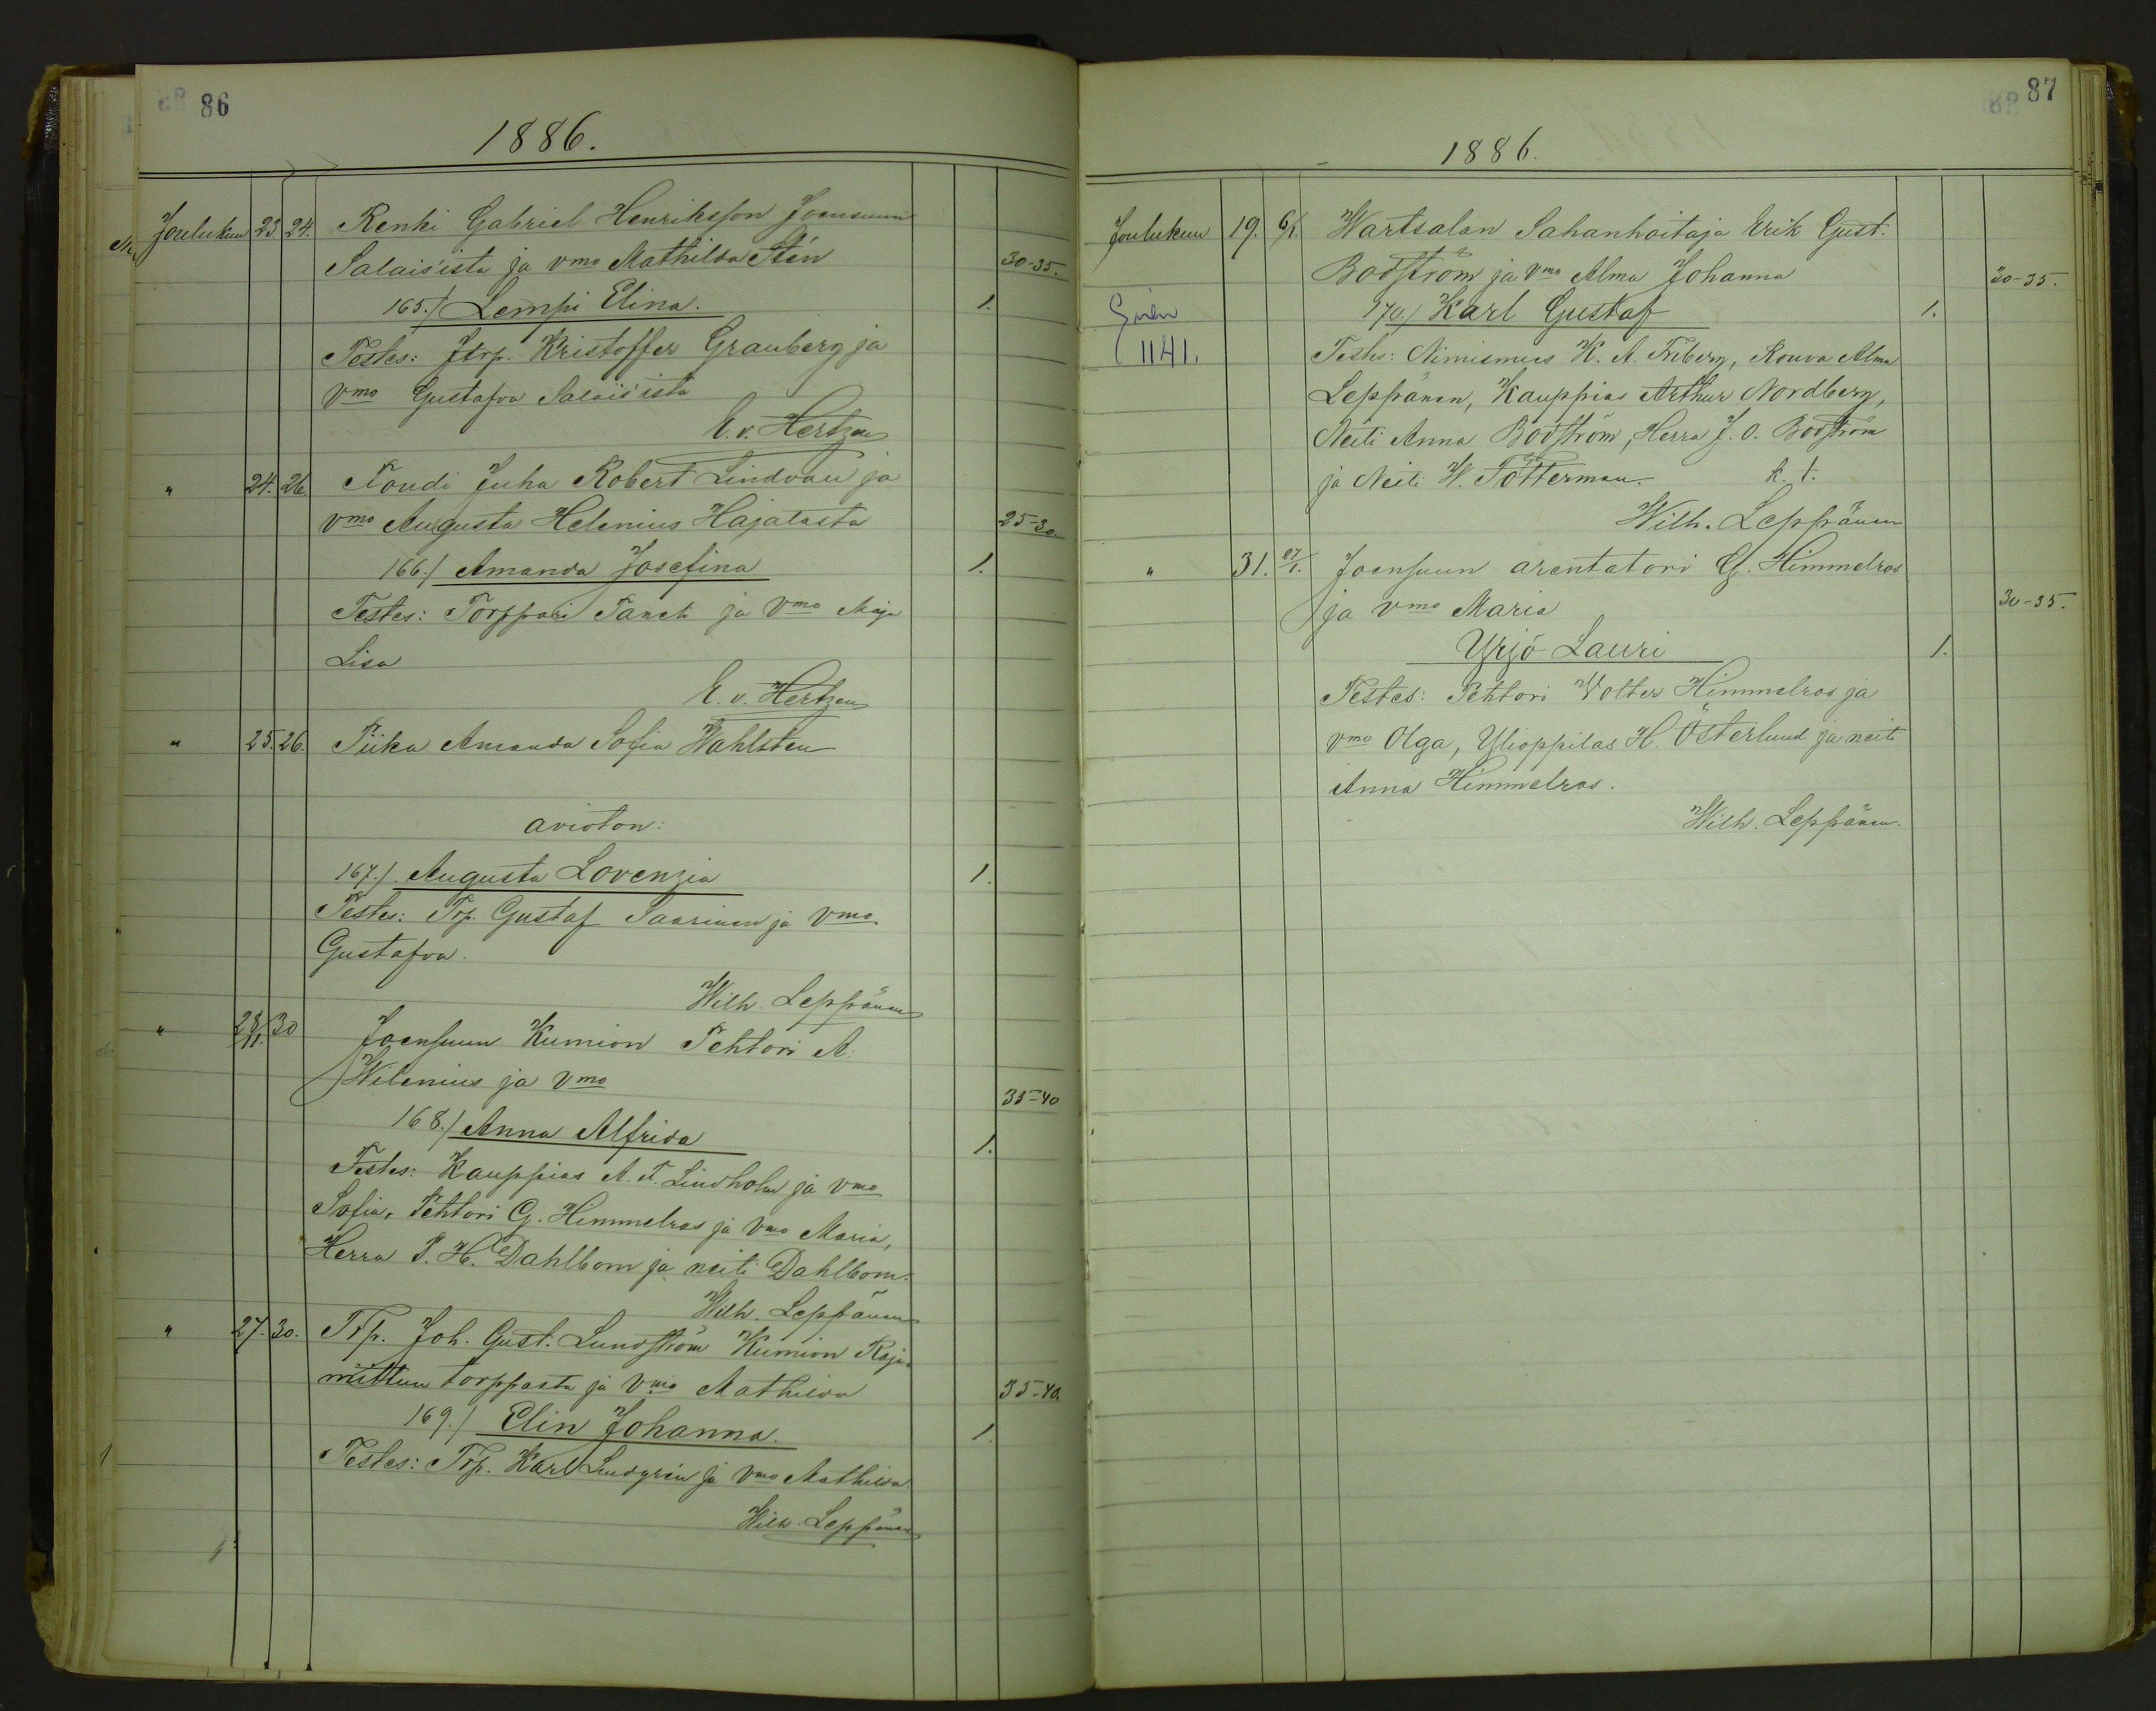 86
1886.
Joulukuu 23 24. Renki Gabriel Henriksson Joensuun
Salaisista ja vmo Mathilda Stén 30-35.
165./ Lempi Elina. 1.
Testes: Itrp. Kristoffer Granberg ja
vmo Gustafva Salaisista
E. v. Hertzen
" 24. 26. Noudi Juha Robert Lindvall ja
vmo Augusta Helenius Hajalasta 25-30.
166./ Amanda Josefina 1.
Testes: Torppari ja vmo Maja
Lisa
E. v. Hertzen
" 25. 26. Piika Amanda Sofia Wahlsten
avioton:
167./. Augusta Lovenzia 1.
Testes: Trp. Gustaf Saarinen ja vmo
Gustafva.
Wilh. Leppänen
" 28/11. 30 Joensuun Kumion Pehtori A.
Wilenius ja vmo 35-40
168./ Anna Alfrida 1.
Testes: Kauppias A. F. Lindholm ja vmo
Sofia, Pehtori G. Himmelros ja vmo Maria,
Herra P. H. Dahlbom ja neiti Dahlbom.
Wilh. Leppänen
" 27. 30. Trp. Joh. Gust. Lundström Kumion Raja-
mittun torpasta ja vmo Mathilda 35-40.
169./ Elin Johanna. 1.
Testes: Trp. Karl Lindgrén ja vmo Mathilda
Wilh. Leppänen
87
1886.
Joulukuu 19. 6/1. Wartsalan Sahanhoitaja Erik Gust.
Bodström ja vmo Alma Johanna 30-35.
170./ Karl Gustaf 1.
1141.
Testes: Nimismies K. A. Friberg, Rouva Alma
Leppänen, Kauppias Arthur Nordberg,
Neiti Anna Bodström, Herra J. O. Bodström
ja Neiti W. Totterman. k. t.
Wilh. Leppänen
" 31. 27/1. Joensuun arentatori G. Himmelros
ja vmo Maria 30-35.
Yrjö Lauri 1.
Testes: Pehtori Wolter Himmelros ja
vmo Olga, Ylioppilas H. Österlund ja neiti
Anna Himmelros.
Wilh. Leppänen.